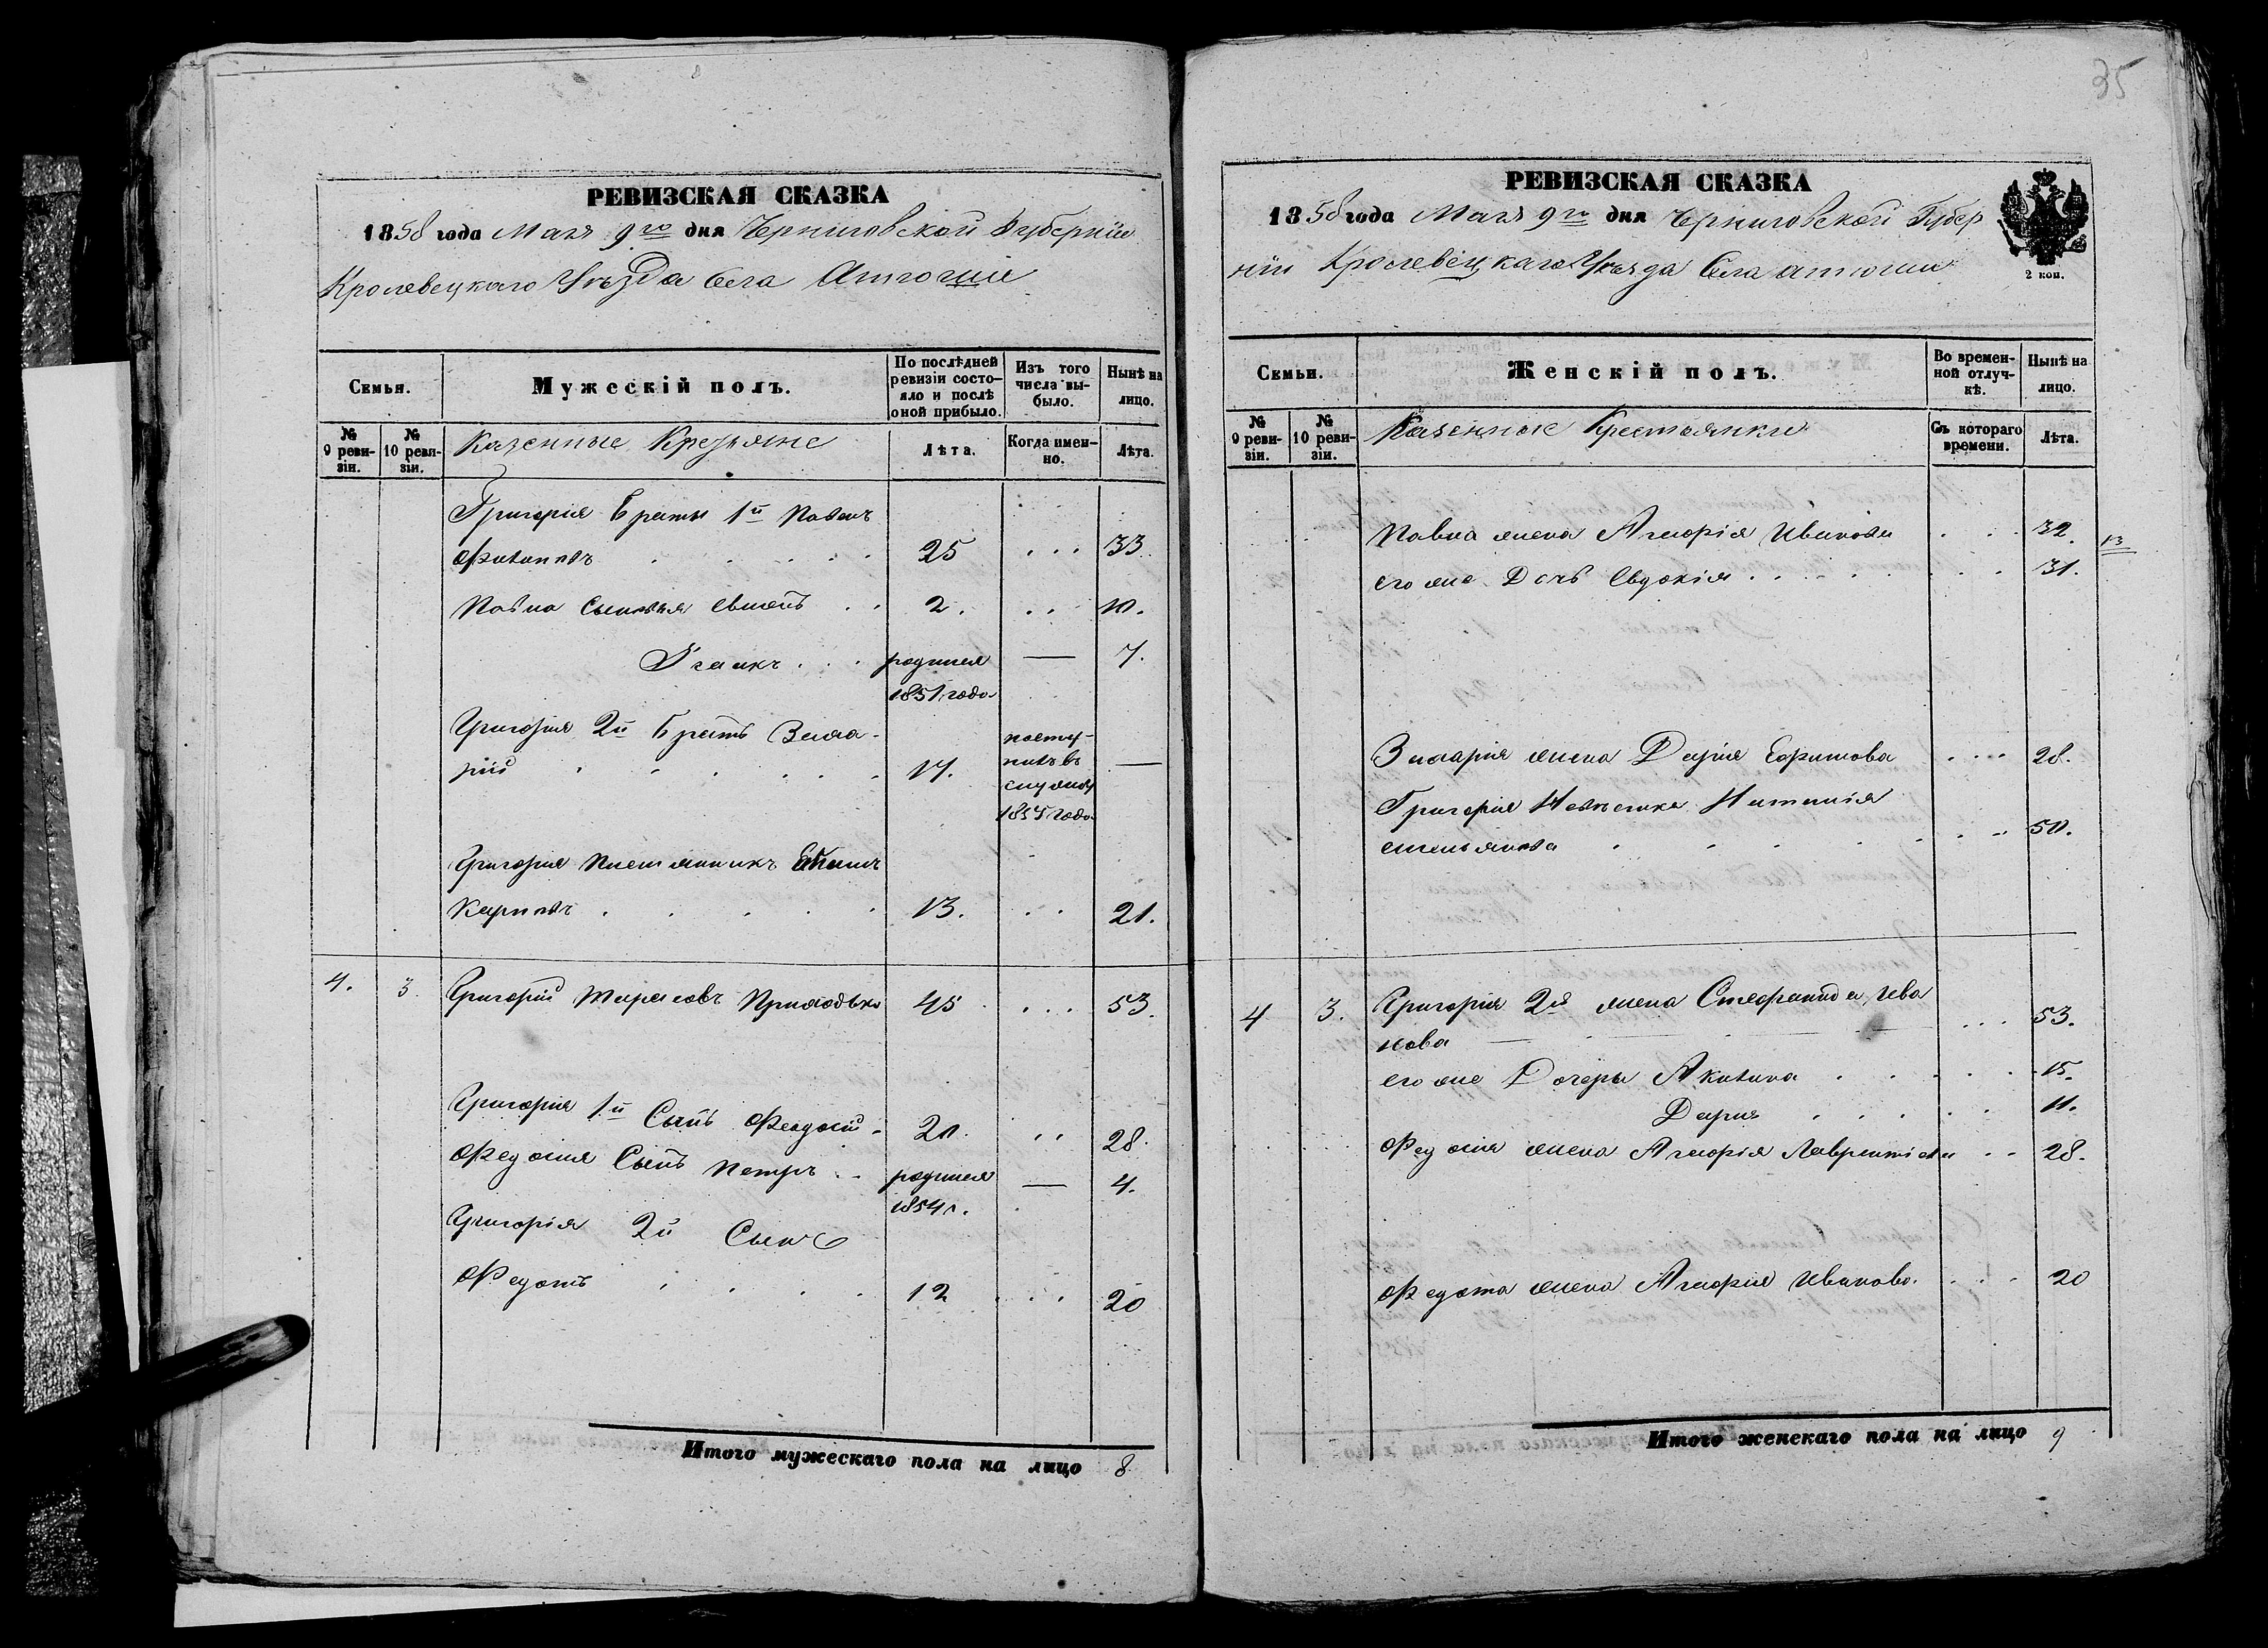 35
РЕВИЗСКАЯ СКАЗКА
1858 года Мая 9го дня Черниговской Губерніи
Кролевецкаго Уѣзда Села Атюши
Семьи.
Мужескій полъ.
По послѣдней ревизіи состо-
яло и послѣ оной прибыло.
Изъ того числа вы-
было.
Нынѣ на лицо.
№ 9 реви-
зіи.
№ 10 реви-
зіи.
Казенные Крезьяне
Лѣта.
Когда имен-
но.
Лѣта.
Григорія Браты 1й Павелъ
Филиповъ 25 33.
Павла Сыновья 2. 10.
родился — 7.
1851 года
Григорія 2й Братъ Заха-
рій 17. посту-
пилъ въ
службу
185 года —
Григорія Племянникъ
Карповъ 13. 21.
4. 3. Григорій Тарасовъ Приходько 45 53.
Григорія 1й Сынъ Феодосій 20. 28.
Федосія Сынъ Петръ родился — 4.
1854 г.
Григорія 2й Сынъ
Федотъ 12 20
Итого мужескаго пола на лицо 8
РЕВИЗСКАЯ СКАЗКА
1858 года Мая 9го дня Черниговской Губер
ніи Кролевецкаго Уѣзда Села Атюши
2 коп.
Семьи.
Женскій полъ.
Во времен-
ной отлуч-
кѣ.
Нынѣ на лицо.
№ 9 реви-
зіи.
№ 10 реви-
зіи.
Казенные Крестьянки
Съ котораго времени.
Лѣта.
Павла жена Агафія Иванова 32.
13
его же Дочь Евдокія 31.
Захарія жена Дарія Ефимова 28.
Григорія Невѣстка Наталія
Емельянова 50.
4 3. Григорія 2й жена Стефанида Ива
нова 53.
его же Дочеры Акилина 15.
Дарія 11.
Федосія жена Агафія Лаврентіева 28.
Федота жена Агафія Иванова 20
Итого женскаго пола на лицо 9